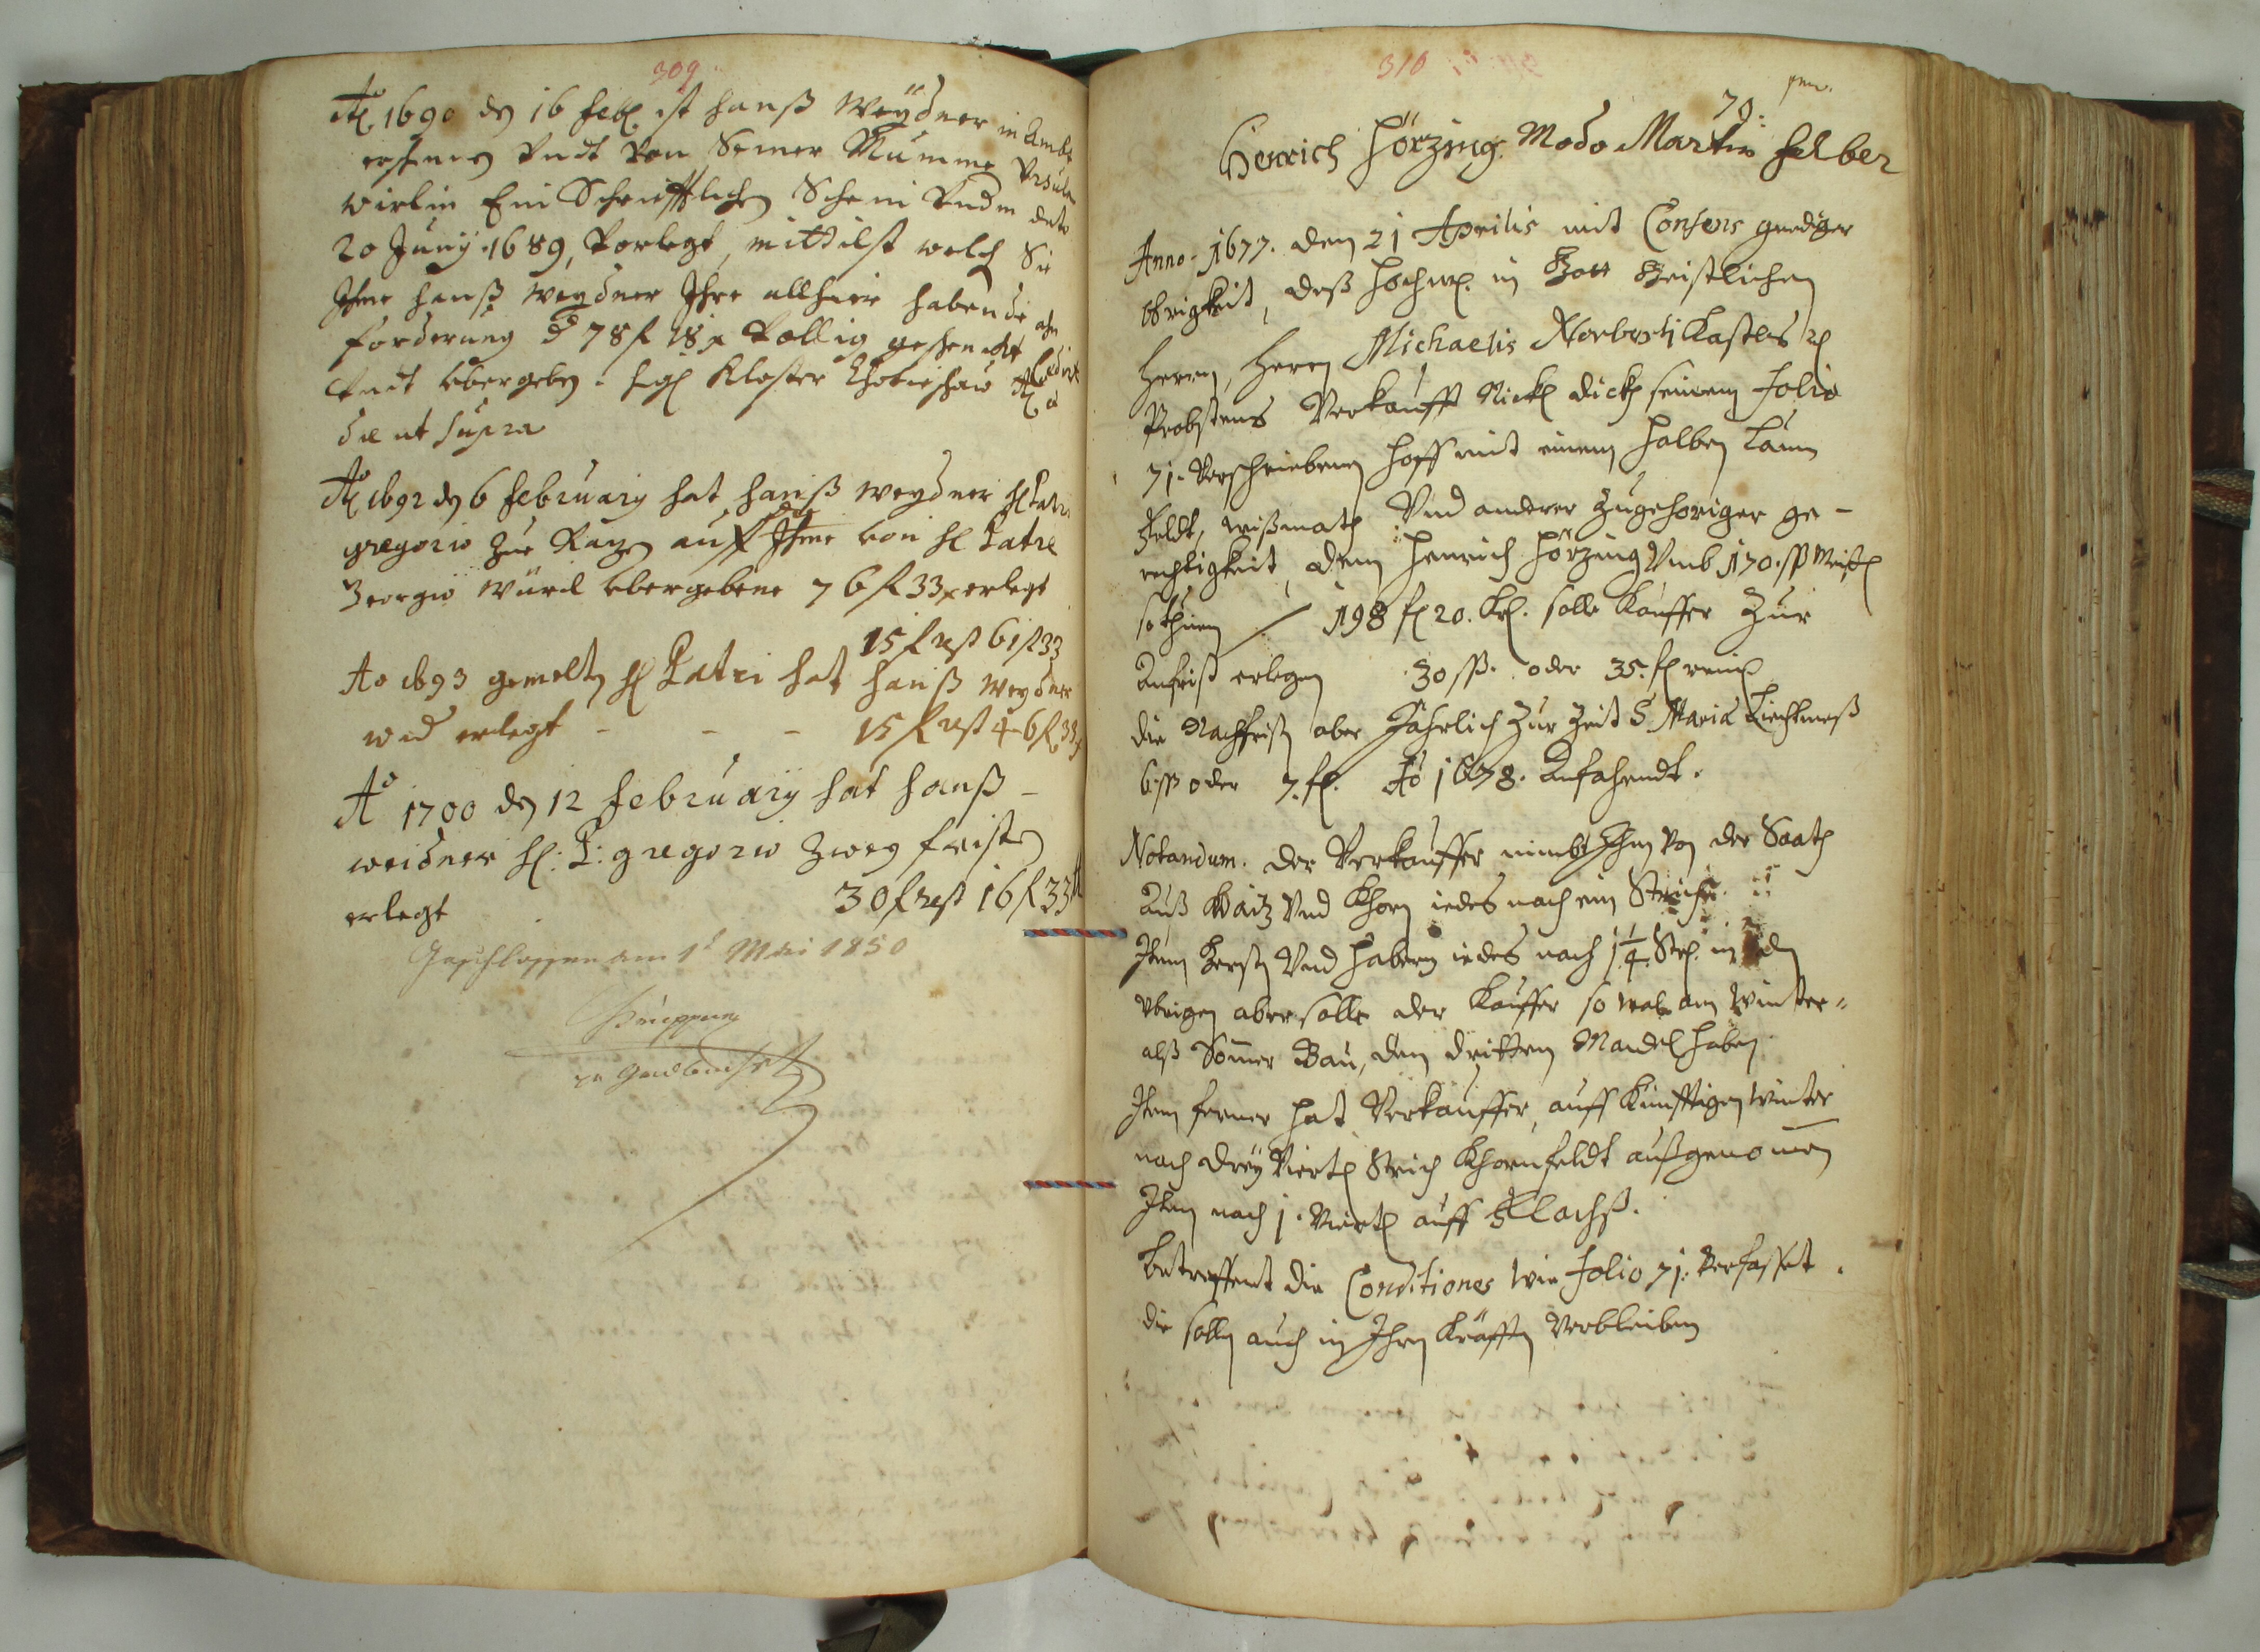 309
Ao 1690 den 16 Feb ist Hanß Weÿdner in Ambt
erschienen Undt Von Seiner Muumme Ursula
Wirlin Ein Schrifftlichen Schein Undern dato
20 Junij 1689, Vorlegt, mittelst welch Sie
Ihme Hanß Weydner Ihre allhier habende
forderung d 78 f 18 x Vollig geschenckt
Undt Ubergeben. Sigl Kloster Chotieschau
die ut supra
Ao 1692 den 6 Februarij hat Hanß Weydner H Patri
Gregorio Zue auff Ihme von H Patre
Georgio Würl Ubergebene 76 f 33 x erlegt
15 f rest 61 f 33
Ao 1693 gemelten H Patri hat Hanß Weydner
wid erlegt - - - 15 f rest 46 f 33 x
Ao 1700 den 12 Februarij hat Hanß -
Weidner H: P: Gregorio Zwey fristen
erlegt 30 f rest 16 f 33
Geschlossen am 1t Mai 1850
310
70.
Henrich Hörzing. Modo Martin Felber
Anno 1677. den 21 Aprilis mit Consens gnediger
Obrigkeit, deß Hochw. in Gott Geistlichen
Herrn, Herrn Michaelis Norberti Kastls
Probstens Verkaufft Nickl Dickh seinem Folio
71. Verschriebenen Hoff mit einem halben Laun
Feldt, wißmath Vnd anderer Zugehoriger ge-
rechtigkeit, dem Henrich Hörzing Vmb 170. ßß Meiß
so thuen 198 fl 20. Kr. solle Kauffer Zur
Anfrist erlegen 30 ßß. oder 35. fl rein
die Nachfrist aber Jährlich Zur Zeit S Maria Liechtmeß
6 ßß oder 7. fl. Ao 1678. Anfahendt.
Notandum. der Verkauffer nimbt Ihm Von der Saath
Auß Waitz Vnd Khorn iedes nach ein Strich
Item Gersten Vnd Habern iedes nach 1 1/4 Str. in den
Vbrigen aber solle der Kauffer so wol am Winter-
alß Sommer Bau, den dritten Mandel haben
Item ferner hat Verkauffer, auff Künfftigen Winter
nach dreÿ Viertl Strich Khornfeldt außgenommen
Item nach 1. Viertl auff Flachß.
Betreffent die Conditiones Wie Folio 71. Verfasset.
die sollen auch in Ihren Kräfften Verbleiben